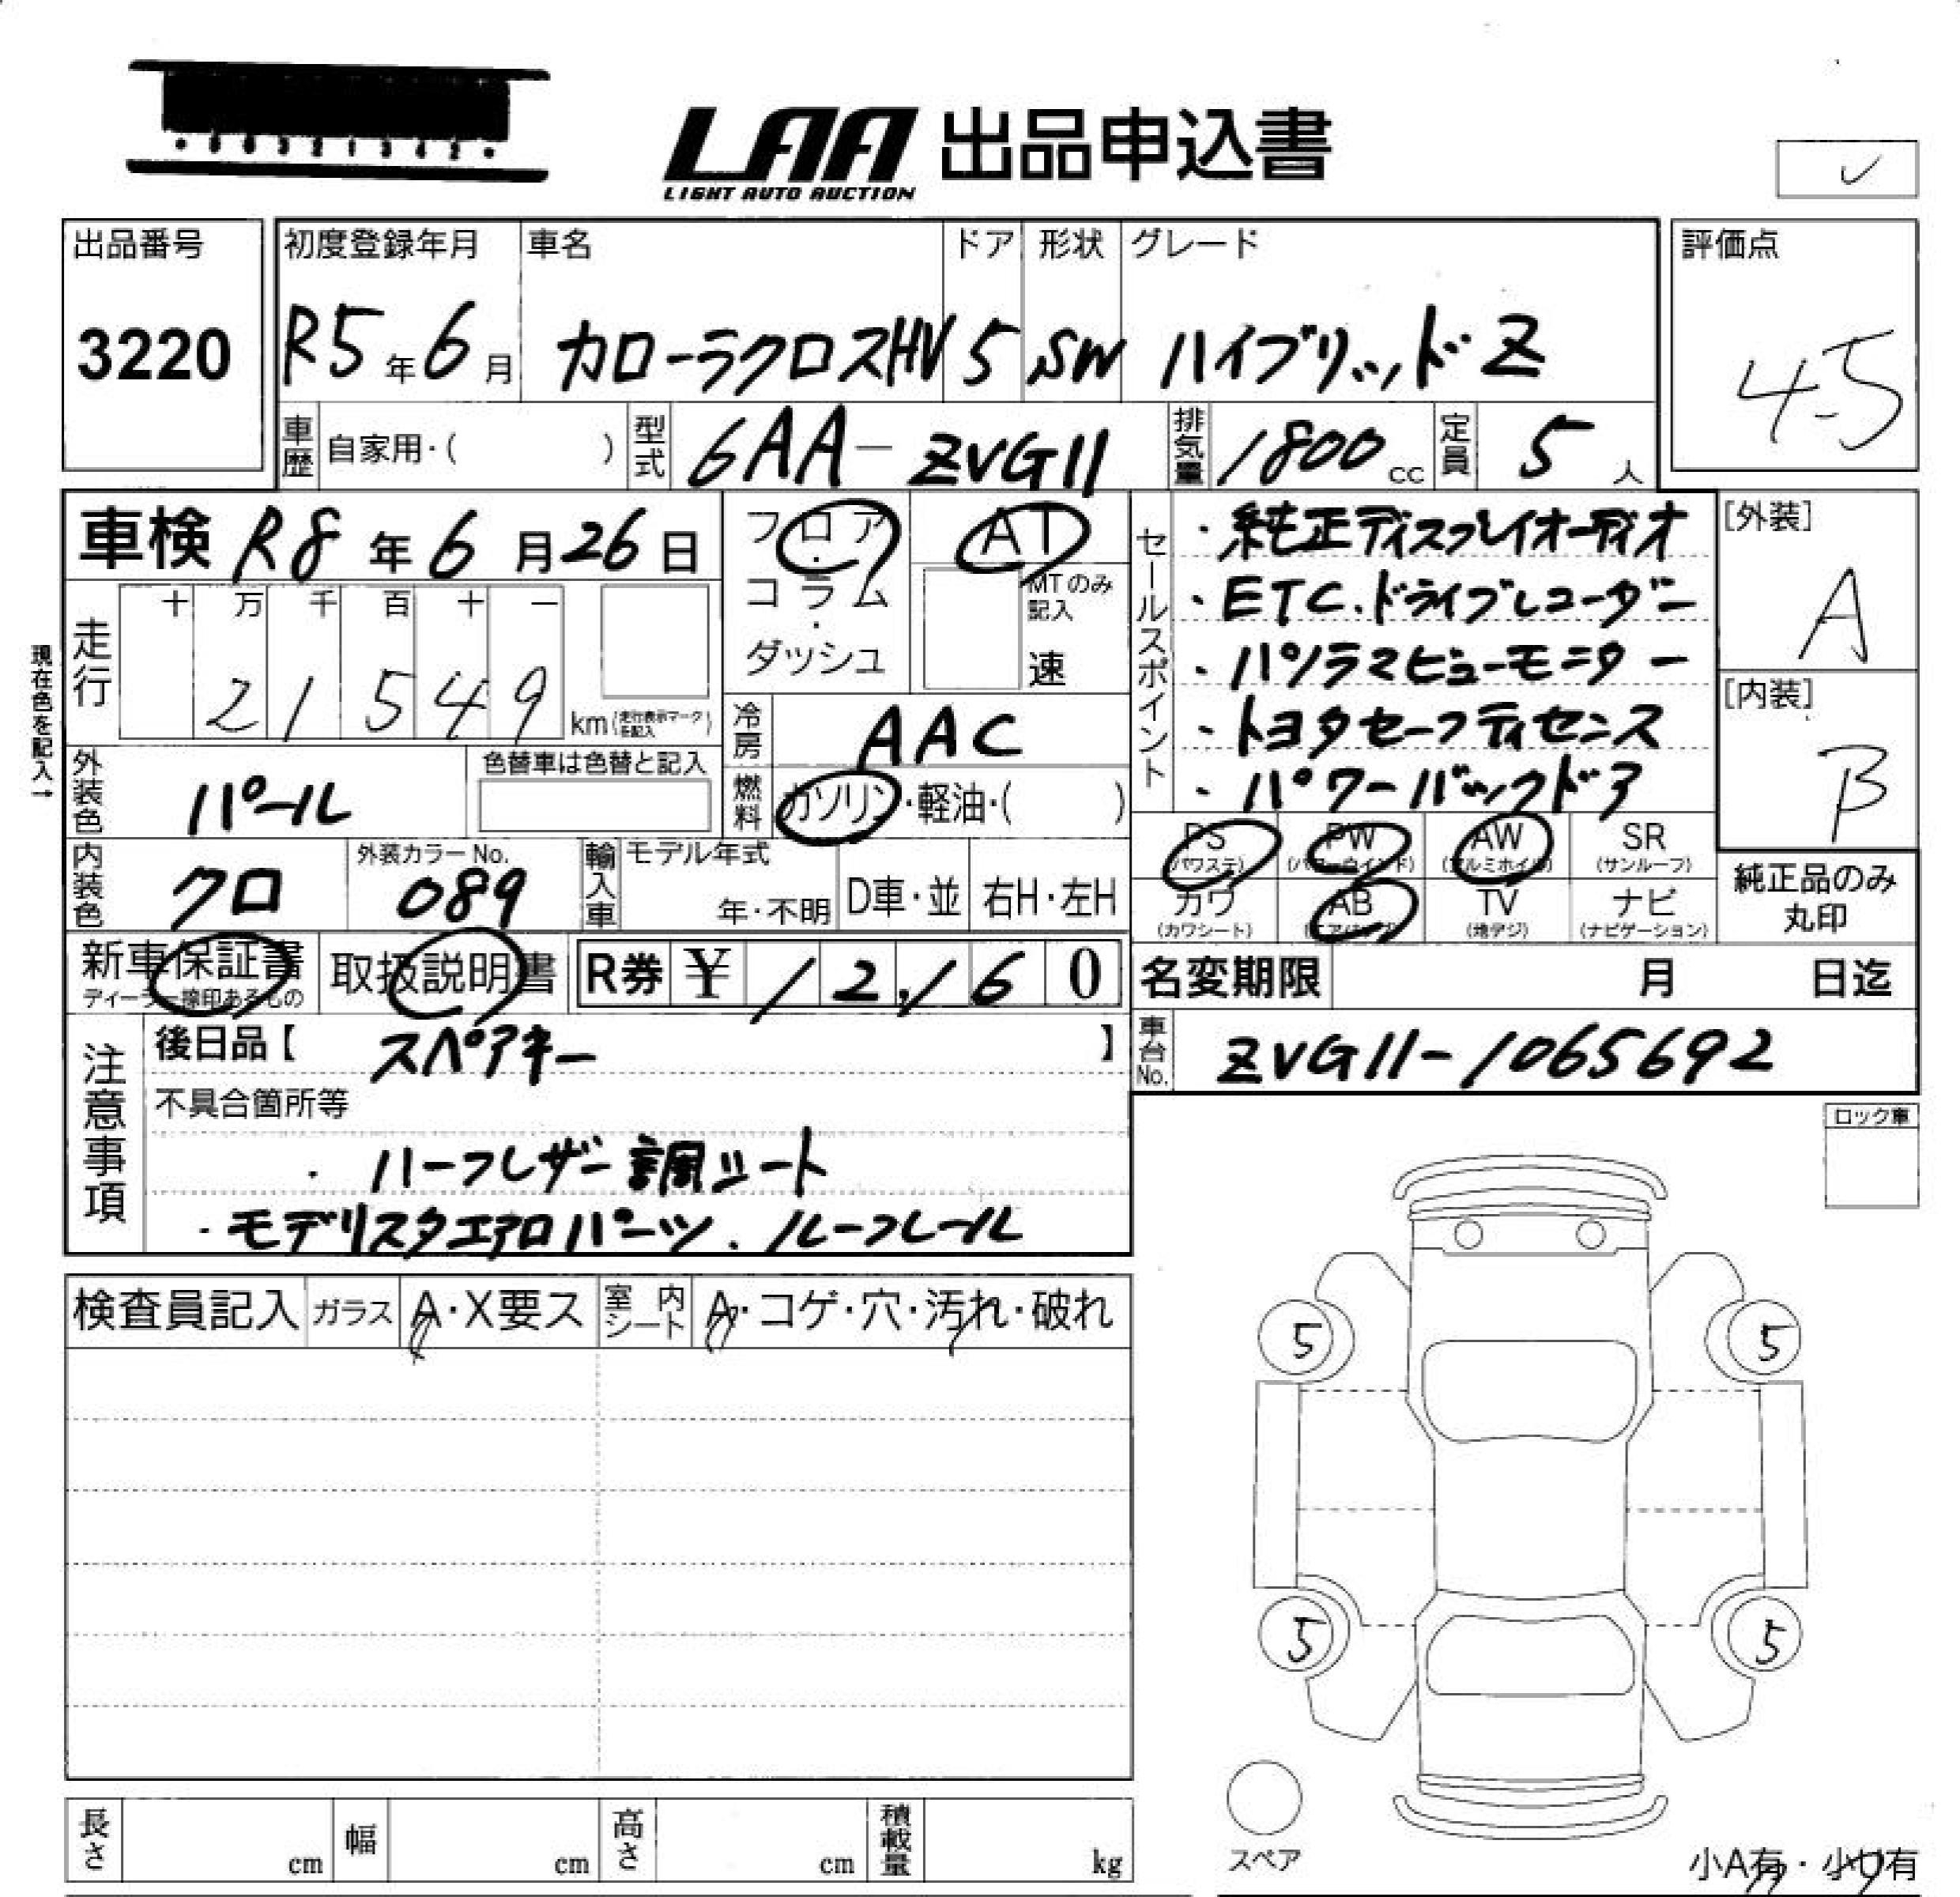 LAA 出品申込書
LIGHT AUTO AUCTION
出品番号
3220
初度登録年月
R5年6月
車名
カローラクロスHV
ドア
5
形状
SW
グレード
ハイブリッドZ
評価点
4.5
車歴
自家用・( )
型式
6AA-ZVG11
排気量
1800cc
定員
5人
車検 R8年6月26日
フロア・コラム・ダッシュ
AT
MTのみ記入
速
セールスポイント
・純正ディスプレイオーディオ
・ETC.ドライブレコーダー
・パノラマビューモニター
・トヨタセーフティセンス
・パワーバックドア
[外装]
A
[内装]
B
現在色を記入→
走行
十 万 千 百 十 一
2 1 5 4 9
km(走行表示マークを記入)
冷房
AAC
外装色
パール
色替車は色替と記入
燃料
ガソリン・軽油・( )
PS (パワステ)
PW (パワーウインド)
AW (アルミホイル)
SR (サンルーフ)
カワ (カワシート)
AB (エアバッグ)
TV (地デジ)
ナビ (ナビゲーション)
純正品のみ丸印
内装色
クロ
外装カラーNo.
089
輸入車
モデル年式
年・不明
D車・並
右H・左H
新車保証書
ディーラー捺印あるもの
取扱説明書
R券 ¥ 12,160
名変期限 月 日迄
注意事項
後日品【 スペアキー 】
不具合箇所等
・ハーフレザー調シート
・モデリスタエアロパーツ.ルーフレール
車台No.
ZVG11-1065692
ロック車
検査員記入
ガラス
A・X要ス
室内シート
A・コゲ・穴・汚れ・破れ
5
5
5
5
スペア
長さ cm
幅 cm
高さ cm
積載量 kg
小A有・小U有